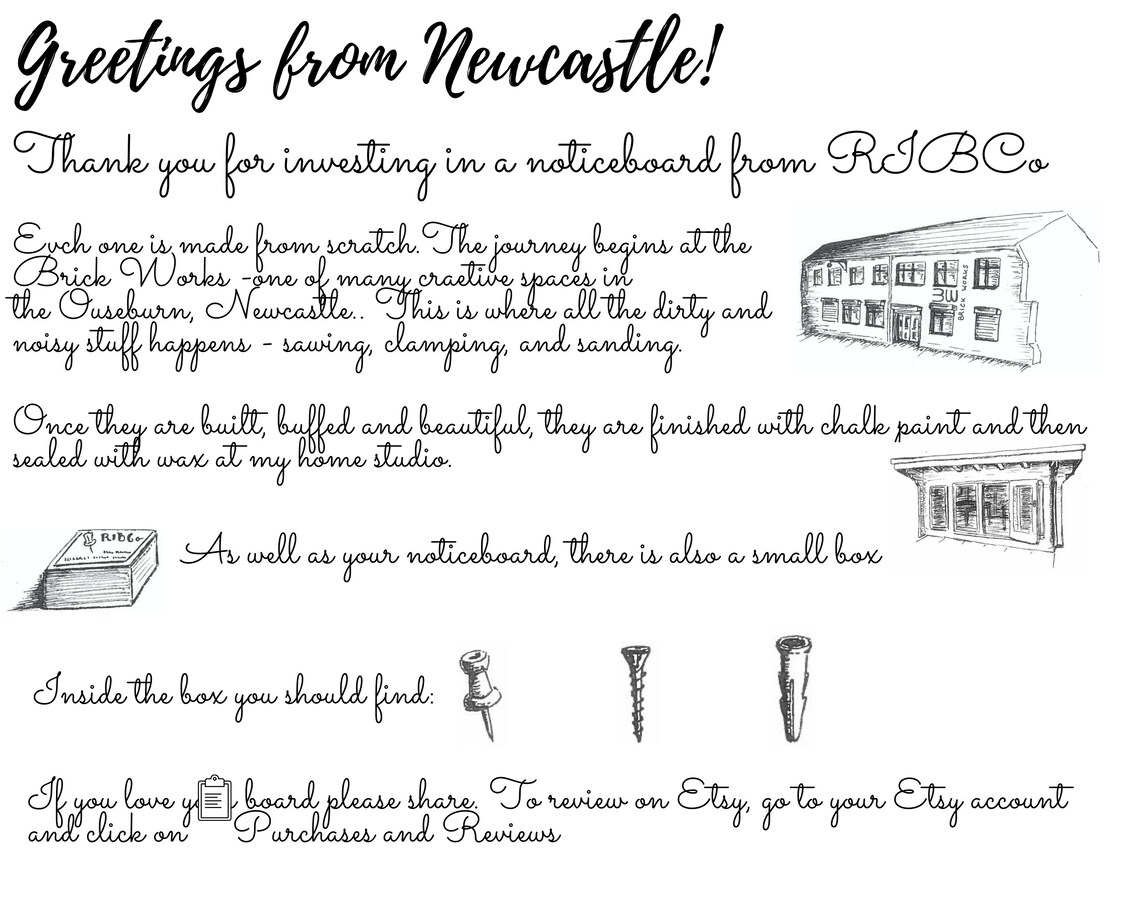 Greetings from Newcastle!
Thank you for investing in a noticeboard from RIBCo
Evch one is made from scratch. The journey begins at the
Brick Works -one of many craetive spaces in
the Ouseburn, Newcastle.. This is where all the dirty and
noisy stuff happens - sawing, clamping, and sanding.
BW
BRICK WORKS
Once they are built, buffed and beautiful, they are finished with chalk paint and then
sealed with wax at my home studio.
RIBCo
As well as your noticeboard, there is also a small box
Inside the box you should find:
If you love board please share. To review on Etsy, go to your Etsy account
and click on Purchases and Reviews